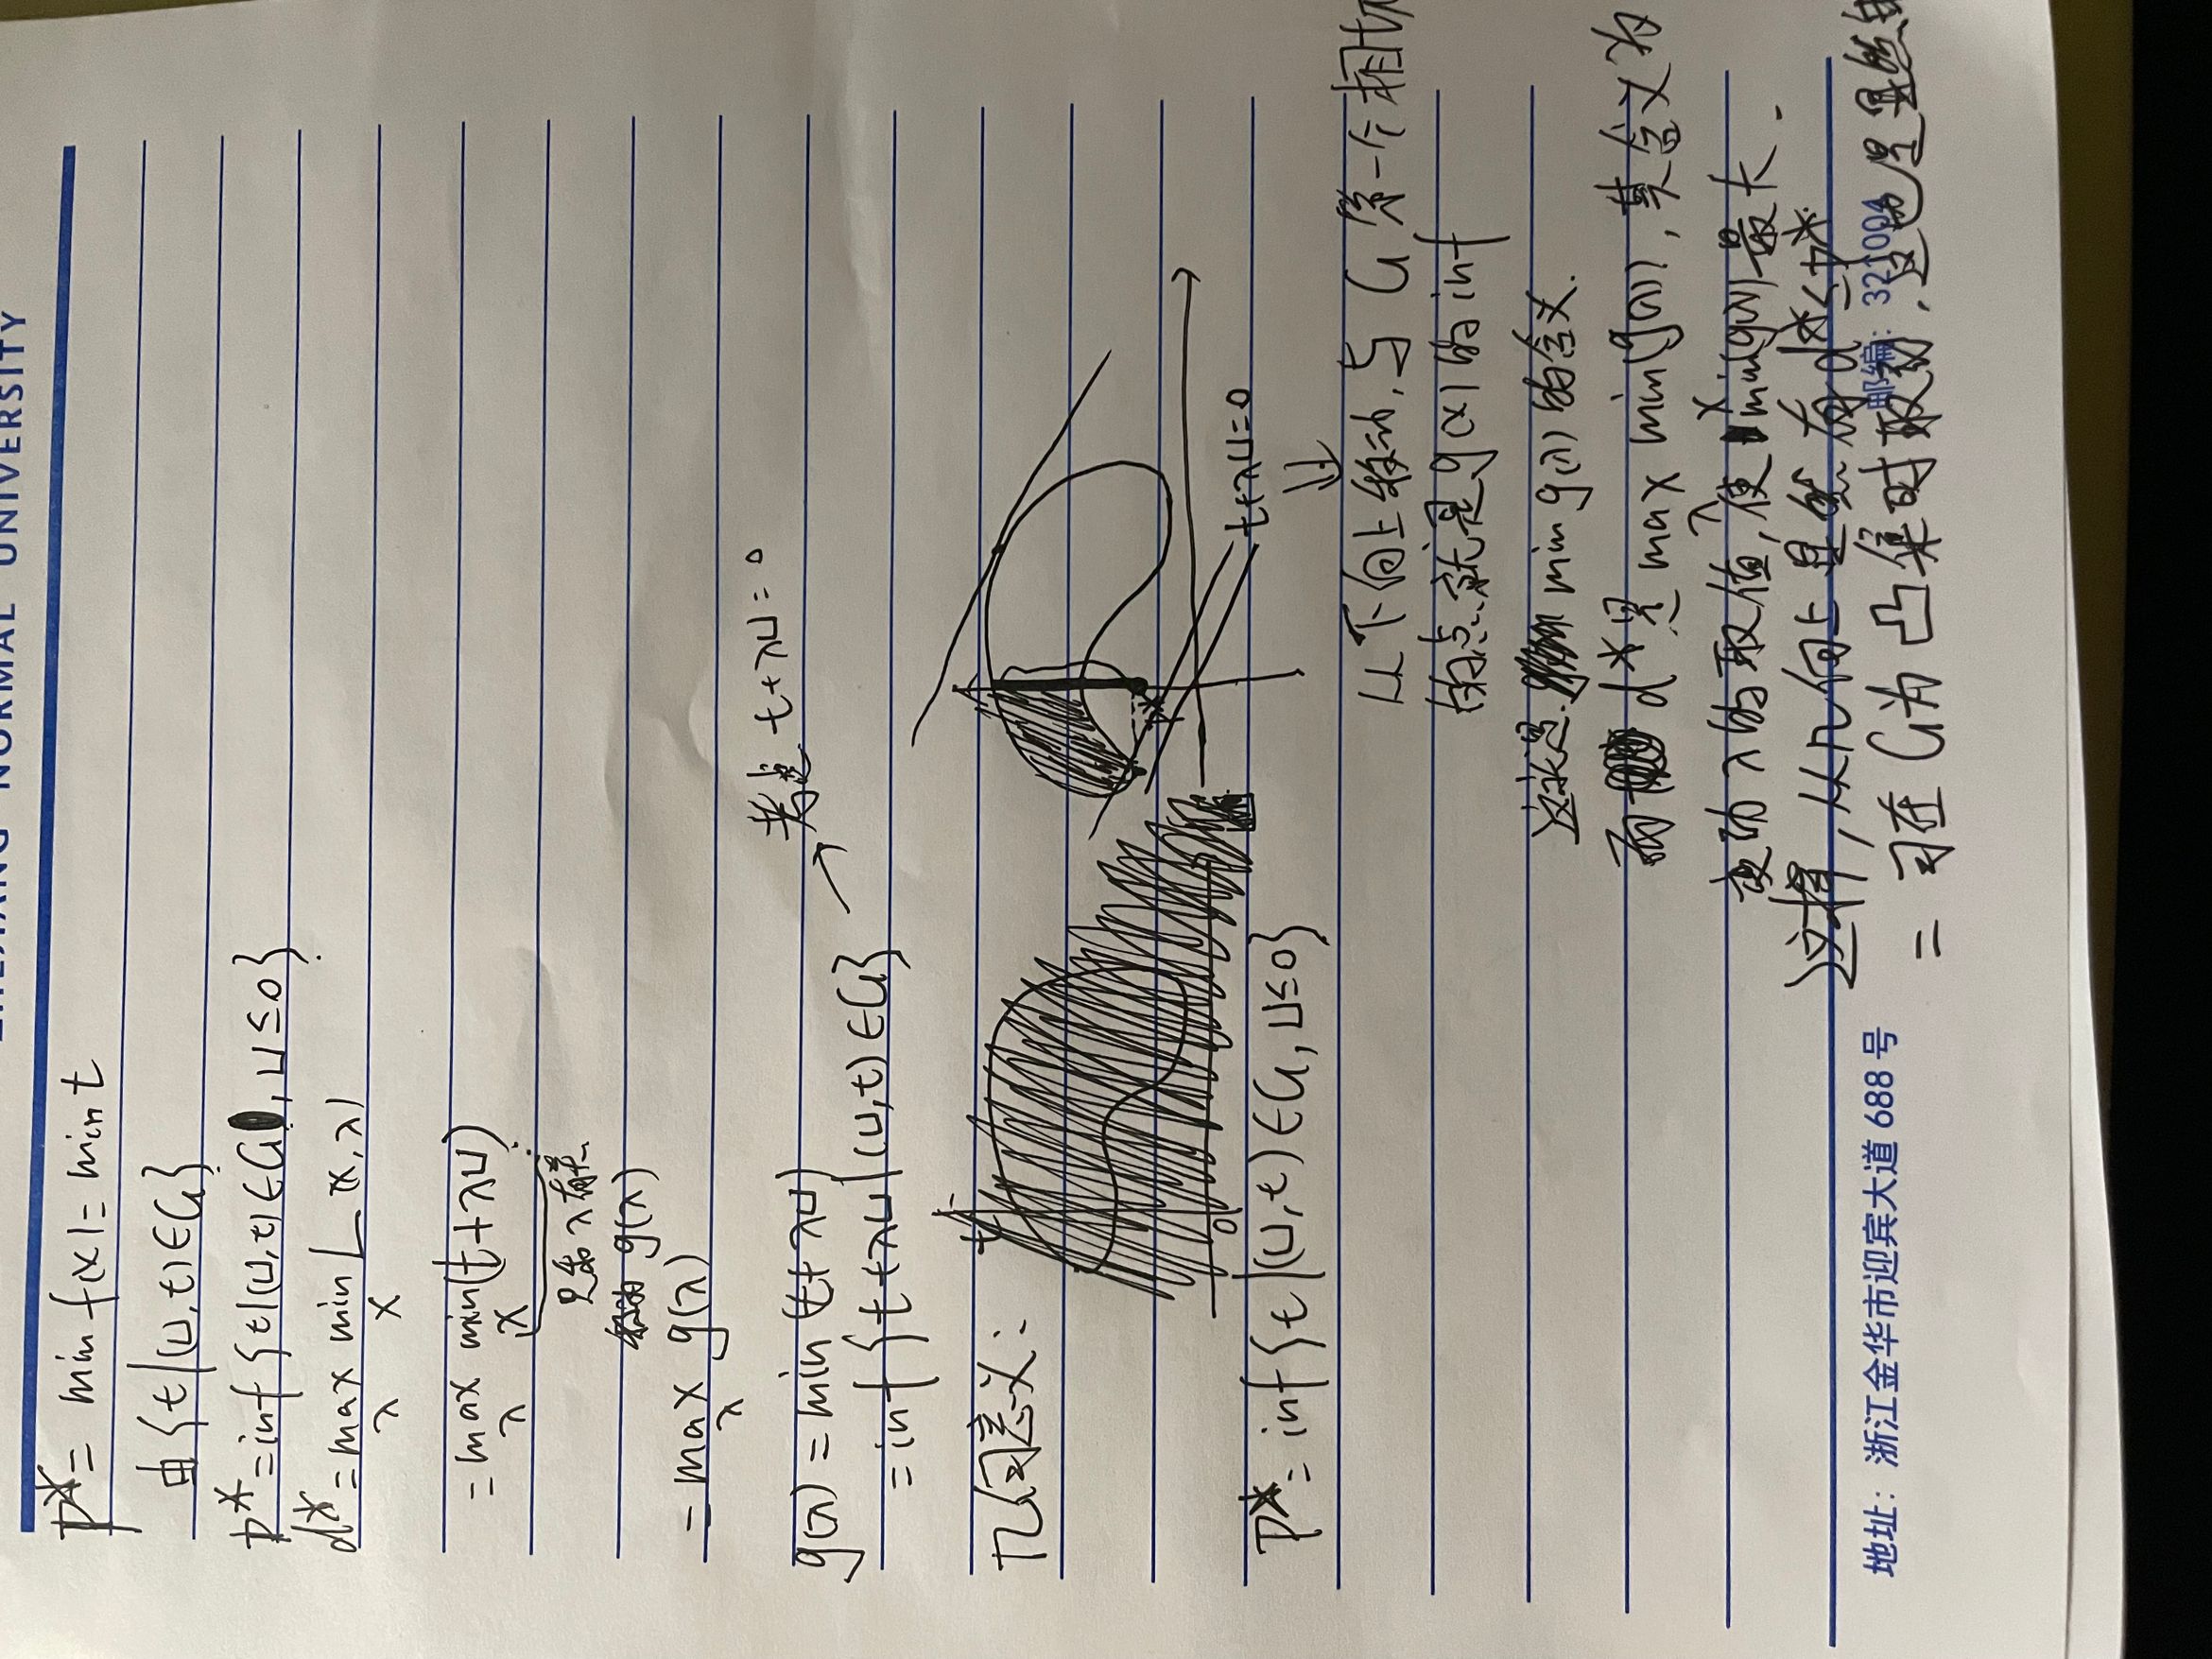 ZHEJIANG NORMAL UNIVERSITY
p* = min f(x) = min t
由 {t|(u,t)∈G}
p* = inf {t|(u,t)∈G, u≤0}
d* = max min L(x,λ)
λ x
= max min(t+λu)
λ x
只和λ有关
称为 g(λ)
= max g(λ)
λ
g(λ) = min (t+λu)
= inf {t+λu|(u,t)∈G} → 考虑 t+λu=0
几何意义:
t
0
p*
t+λu=0
p* = inf{t|(u,t)∈G, u≤0}
⇓
从下向上移动,与G第一个相切
的点就是g(x)的inf
这就是 min g(λ) 的含义.
而 d*是 max min(g(λ)),其含义为
λ x
变动λ的取值,使 min(g(λ)) 最大.
这样,从几何上显然有d*≤p*
= 可在G为凸集时取到,这也是显然的
地址:浙江金华市迎宾大道 688 号 邮编:321004